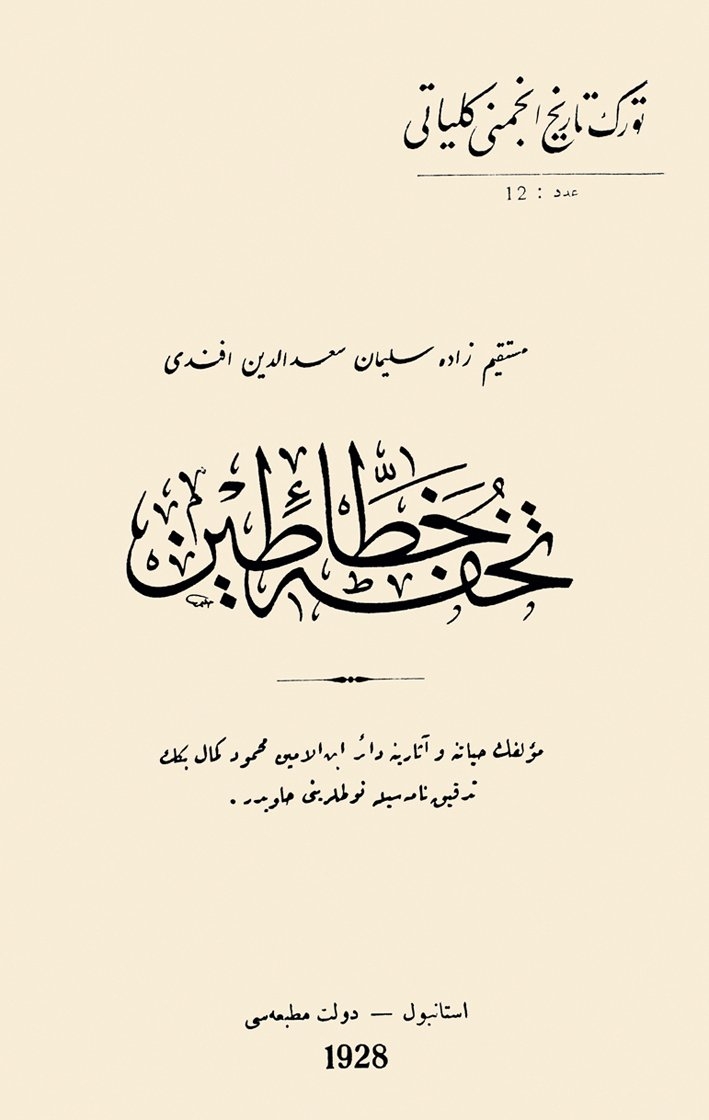 تورك تاريخ انجمنى كلياتى
عدد : 12
مستقيم زاده سليمان سعدالدين افندى
تحفهٔ خطاطين
مؤلفك حياتنه و آثارينه دائر ابن الامين محمود كمال بكك
تدقيق نامه سيله نوطلرينى حاويدر .
استانبول — دولت مطبعه‌سى
1928